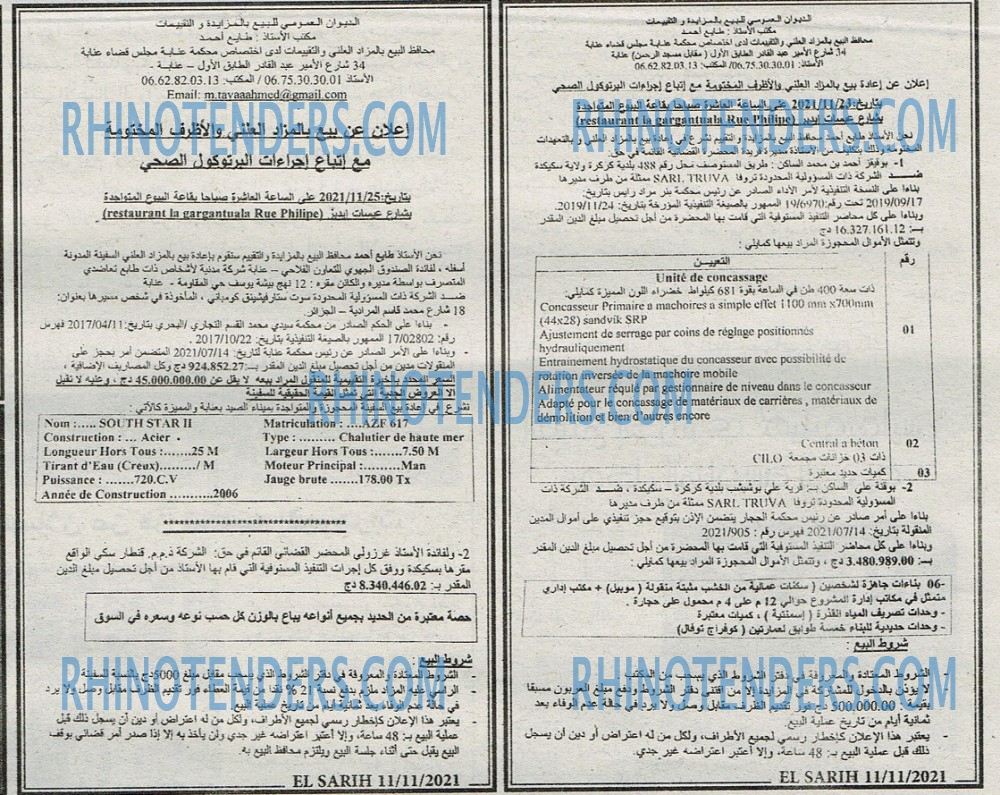 الديوان العمومي للبيع بالمزايدة و التقييمات
مكتب الأستاذ : طايع أحمد
محافظ البيع بالمزاد العلني والتقييمات لدى اختصاص محكمة عنابة مجلس قضاء عنابة
34 شارع الأمير عبد القادر الطابق الأول ( مقابل مسجد الرحمن) عنابة
الأستاذ: 06/75.30.30.01 المكتب: 06.62.82.03.13
إعلان عن إعادة بيع بالمزاد العلني والأظرف المختومة مع إتباع إجراءات البرتوكول الصحي
بتاريخ: 2021/11/23 على الساعة العاشرة صباحا بقاعة البيوع المتواجدة
بشارع عيسات إيدير (restaurant la gargantuala Rue Philipe)
نحن الأستاذ طايع أحمد محافظ البيع بالمزايدة والتقييم نشرع في إعادة بيع بالمزاد العلني و بالتعهدات
المختومة
1- بوقيغز أحمد بن محمد الساكن : طريق المستوصف محل رقم 488 بلدية كركرة ولاية سكيكدة
ضـــد الشركة ذات المسؤولية المحدودة تروفا SARL TRUVA ممثلة من طرف مديرها
بناءا على النسخة التنفيذية لأمر الأداء الصادر عن رئيس محكمة بئر مراد رايس بتاريخ:
2019/09/17 تحت رقم: 19/6970 الممهور بالصيغة التنفيذية المؤرخة بتاريخ: 2019/11/24.
وبناءا على كل محاضر التنفيذ المستوفية التي قامت بها المحضرة من أجل تحصيل مبلغ الدين المقدر
بـ: 16.327.161.12 دج
وتتمثل الأموال المحجوزة المراد بيعها كمايلي :
رقم التعييـن
Unité de concassage
ذات سعة 400 طن في الساعة بقوة 681 كيلواط خضراء اللون المميزة كمايلي:
Concasseur Primaire a machoires a simple effet 1100 mm x700mm
(44x28) sandvik SRP
01
Ajustement de serrage par coins de réglage positionnés
hydrauliquement
Entrainement hydrostatique du concasseur avec possibilité de
rotation inversée de la machoire mobile
Alimentateur réqulé par gestionnaire de niveau dans le concasseur
Adapté pour le concassage de matériaux de carrières , matériaux de
démolition et bien d'autres encore
02 Central a béton
ذات 03 خزانات مجمعة CILO
03 كميات حديد معتبرة
2- بوقنة علي الساكن بـ: قرية علي بوشبشب بلدية كركرة – سكيكدة ، ضـــد الشركة ذات
المسؤولية المحدودة تروفا SARL TRUVA ممثلة من طرف مديرها
بناءا على أمر صادر عن رئيس محكمة الحجار يتضمن الإذن بتوقيع حجز تنفيذي على أموال المدين
المنقولة بتاريخ: 2021/07/14 فهرس رقم : 2021/905
وبناءا على كل محاضر التنفيذ المستوفية التي قامت بها المحضرة من أجل تحصيل مبلغ الدين المقدر
بـ: 3.480.989.00 دج ، وتتمثل الأموال المحجوزة المراد بيعها كمايلي :
-06 بناءات جاهزة لشخصين ( سكنات عمالية من الخشب مثبتة منقولة ( موبيل) + مكتب إداري
متمثل في مكاتب إدارة المشروع حوالي 12 م على 4 م محمول على حجارة .
- وحدات تصريف المياه القذرة ( إسمنتية ) ، كميات معتبرة
- وحدات حديدية للبناء خمسة طوابق لعمارتين ( كوفراج توفال)
شروط البيع :
- الشروط المعتادة والمعروفة في دفتر الشروط الذي يسحب من المكتب
- لا يؤذن بالدخول للمشاركة في المزايدة إلا من اقتنى دفتر الشروط ودفع مبلغ العربون مسبقا
بقيمة : 500.000.00 دج فور تقديم الظرف مقابل وصل ولا يرد في حالة عدم الوفاء بعد
ثمانية أيام من تاريخ عملية البيع.
- يعتبر هذا الإعلان كإخطار رسمي لجميع الأطراف، ولكل من له اعتراض أو دين أن يسجل
ذلك قبل عملية البيع بـ: 48 ساعة، وإلا أعتبر اعتراضه غير جدي.
EL SARIH 11/11/2021
الديوان العمومي للبيع بالمزايدة و التقييمات
مكتب الأستاذ : طايع أحمد
محافظ البيع بالمزاد العلني والتقييمات لدى اختصاص محكمة عنابة مجلس قضاء عنابة
34 شارع الأمير عبد القادر الطابق الأول – عنابة -
الأستاذ 06/75.30.30.01 / المكتب: 06.62.82.03.13
Email: m.tavaaahmed@gmail.com
إعلان عن بيع بالمزاد العلني والأظرف المختومة
مع إتباع إجراءات البرتوكول الصحي
بتاريخ: 2021/11/25 على الساعة العاشرة صباحا بقاعة البيوع المتواجدة
بشارع عيسات إيدير (restaurant la gargantuala Rue Philipe)
نحن الأستاذ طايع أحمد محافظ البيع بالمزايدة والتقييم سنقوم بإعادة بيع بالمزاد العلني السفينة المدونة
أسفله ، لفائدة الصندوق الجهوي للتعاون الفلاحي – عنابة شركة مدنية لأشخاص ذات طابع تعاضدي
المتصرف بواسطة مديره والكائن مقره : 12 نهج بيشة يوسف حي المقاومة - عنابة
ضــد الشركة ذات المسؤولية المحدودة سوت ستارفيشينق كومباني ، المأخوذة في شخص مسيرها بعنوان:
18 شارع محمد قاسم المرادية – الجزائر.
- بناءا على الحكم الصادر من محكمة سيدي محمد القسم التجاري /البحري بتاريخ: 2017/04/11 فهرس
رقم: 17/02802 الممهور بالصيغة التنفيذية بتاريخ : 2017/10/22.
- وبناءا على الأمر الصادر عن رئيس محكمة عنابة لتاريخ: 2021/07/14 المتضمن أمر بحجز على
المنقولات مدين من أجل تحصيل مبلغ الدين المقدر بـ: 924.852.27 دج وكل المصاريف الإضافية ،
السعر المحدد بالخبرة التقييمية للمنقول المراد بيعه لا يقل عن 45.000.000.00 دج ، وعليه لا تقبل
إلا العروض الجدية التي تمثل القيمة الحقيقية للسفينة
نشرع في إعادة بيع السفينة المحجوزة والمتواجدة بميناء الصيد بعنابة والمميزة كالآتي :
Nom :….. SOUTH STAR II Matriculation : …AZF 617
Construction : … Acier . Type : ……. Chalutier de haute mer
Longueur Hors Tous :……25 M Largeur Hors Tous :……7.50 M
Tirant d'Eau (Creux)………./ M Moteur Principal :………Man
Puissance : …….720.C.V Jauge brute …….178.00 Tx
Année de Construction ………..2006
******************************
2- ولفائدة الأستاذ غرزولي المحضر القضائي القائم في حق: الشركة ذ.م.م. قنطار سكي الواقع
مقرها بسكيكدة ووفق كل إجراءات التنفيذ المستوفية التي قام بها الأستاذ من أجل تحصيل مبلغ الدين
المقدر بـ: 8.340.446.02 دج
حصة معتبرة من الحديد بجميع أنواعه يباع بالوزن كل حسب نوعه وسعره في السوق
شروط البيع
- الشروط المعتادة والمعروفة في دفتر الشروط الذي يسحب مقابل مبلغ 5000دج بالنسبة للسفينة
- الراسي عليه المزاد ملزم بدفع نسبة 21 % نقدا من قيمة العطاء فور تقديم الظرف مقابل وصل ولا يرد
في حالة عدم الوفاء بعد ثمانية أيام من تاريخ عملية البيع
- يعتبر هذا الإعلان كإخطار رسمي لجميع الأطراف، ولكل من له اعتراض أو دين أن يسجل ذلك قبل
عملية البيع بـ: 48 ساعة، وإلا أعتبر اعتراضه غير جدي ولن يأخذ به إلا إذا صدر أمر قضائي بوقف
البيع يقبل حتى أثناء جلسة البيع ويلتزم محافظ البيع به.
EL SARIH 11/11/2021
RHINOTENDERS.COM
RHINOTENDERS.COM
RHINOTENDERS.COM
RHINOTENDERS.COM
RHINOTENDERS.COM